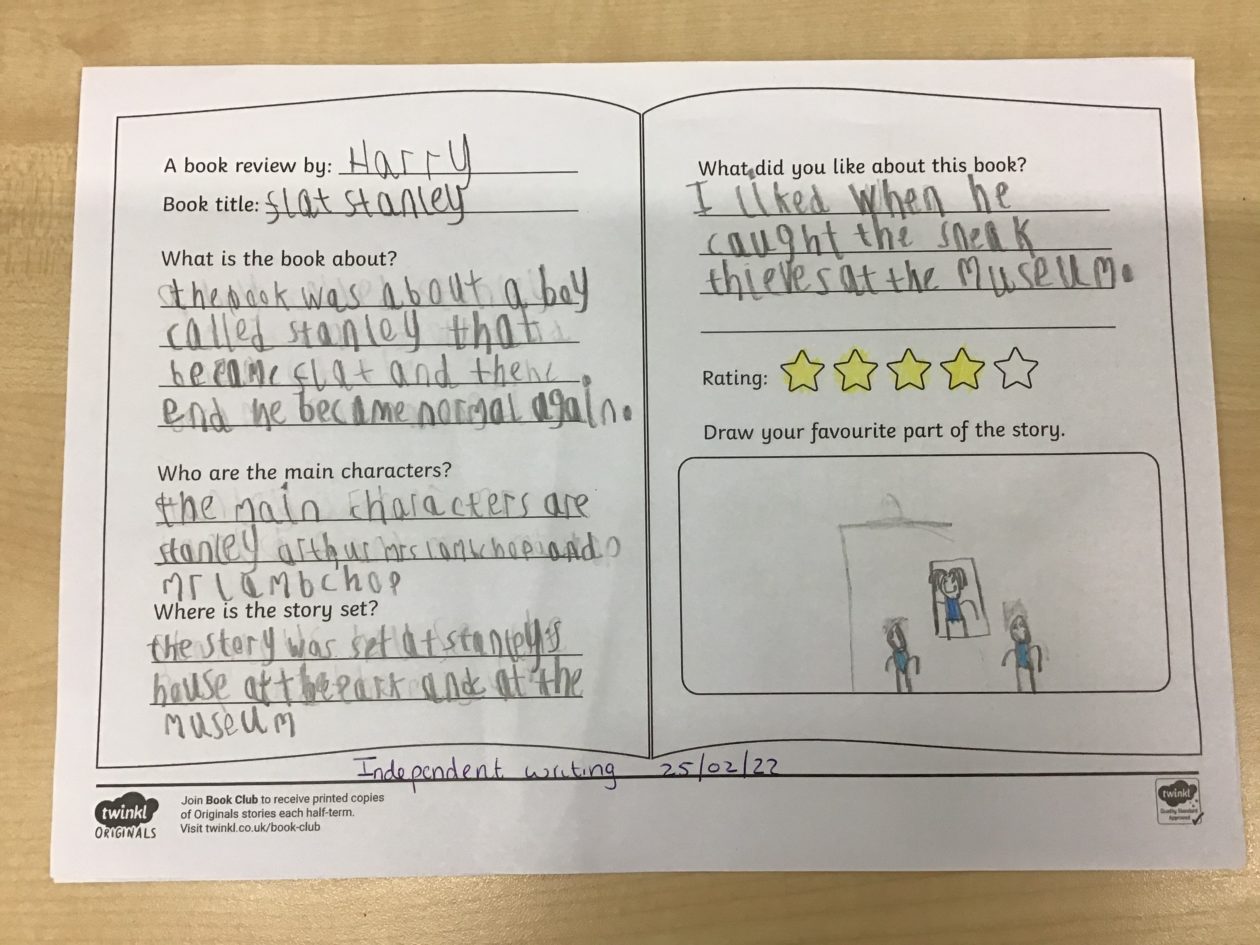 A book review by: Harry
Book title: flat stanley
What is the book about?
the book was about a boy
called stanley that
became flat and thene
end he became normal again.
Who are the main characters?
the main characters are
stanley arthur mrs lambchop and
mr lambchop
Where is the story set?
the story was set at stanley's
house at the park and at the
museum
What did you like about this book?
I liked when he
caught the sneak
thieves at the museum.
Rating:
Draw your favourite part of the story.
Independent writing 25/02/22
twinkl
ORIGINALS
Join Book Club to receive printed copies
of Originals stories each half-term.
Visit twinkl.co.uk/book-club
twinkl
Quality Standard
Approved